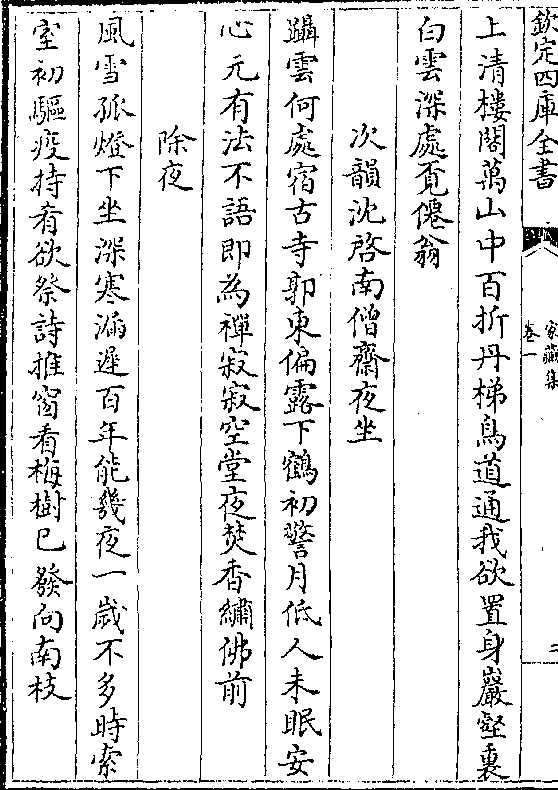 欽定四庫全書
家藏集
卷一
二
上清樓閣萬山中百折丹梯鳥道通我欲置身巖壑裏
白雲深處覓僊翁
次韻沈啓南僧齋夜坐
躡雲何處宿古寺郭東偏露下鶴初警月低人未眠安
心元有法不語即為禪寂寂空堂夜焚香繡佛前
除夜
風雪孤燈下坐深寒漏遲百年能幾夜一嵗不多時索
室初驅疫持肴欲祭詩推窗看梅樹已發向南枝